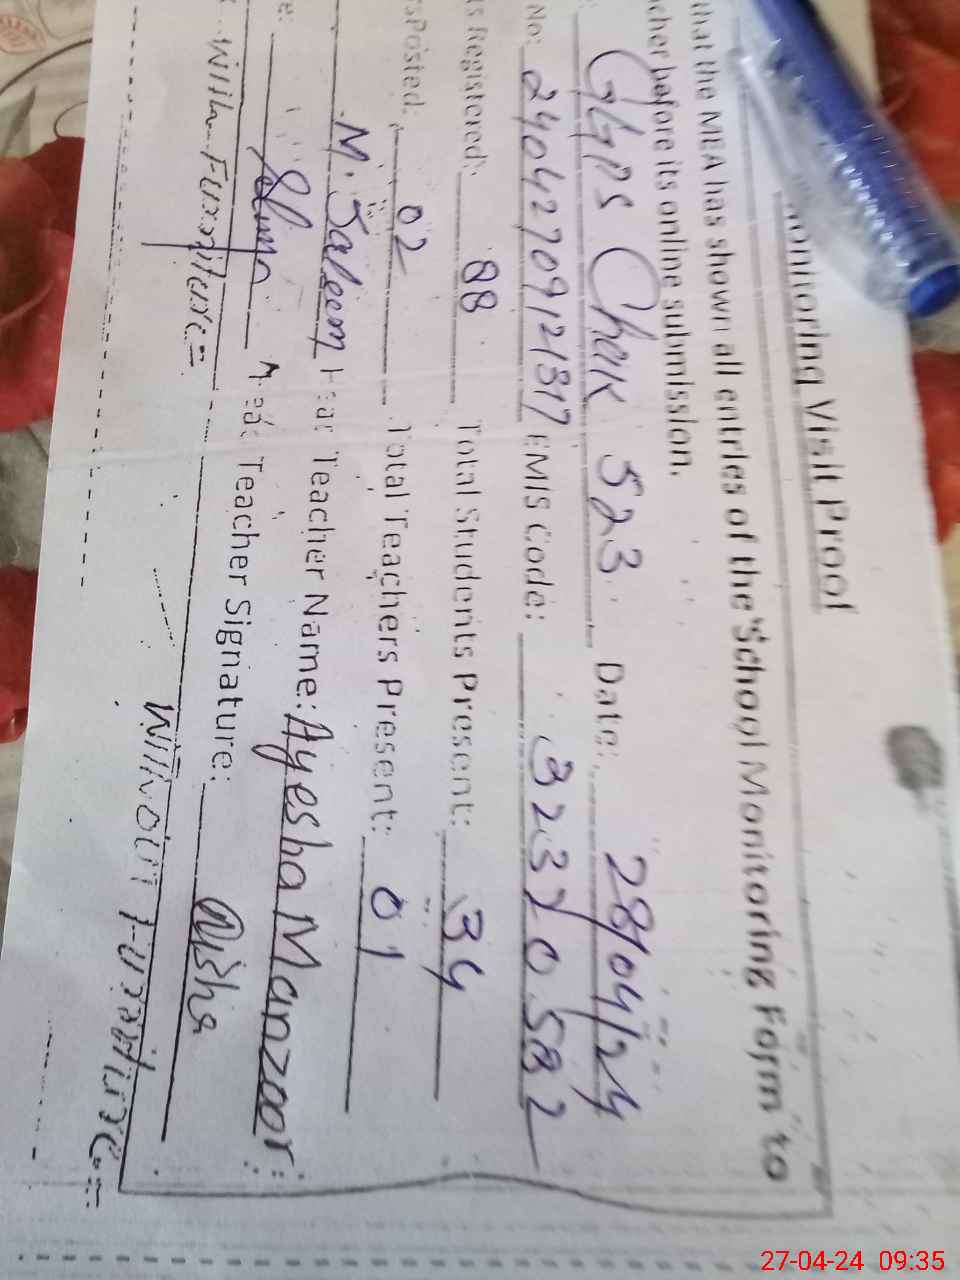 Monitoring Visit Proof
that the MEA has shown all entries of the School Monitoring Form to
cher before its online submission.
GGPS Chak 523 Date: 28/04/24
No: 24042709121317 EMIS Code: 32370582
s Registered: 88 Total Students Present: 34
Posted: 02 Total Teachers Present: 01
M. Saleem Head Teacher Name: Ayesha Manzoor
e: Head Teacher Signature:
27-04-24 09:35